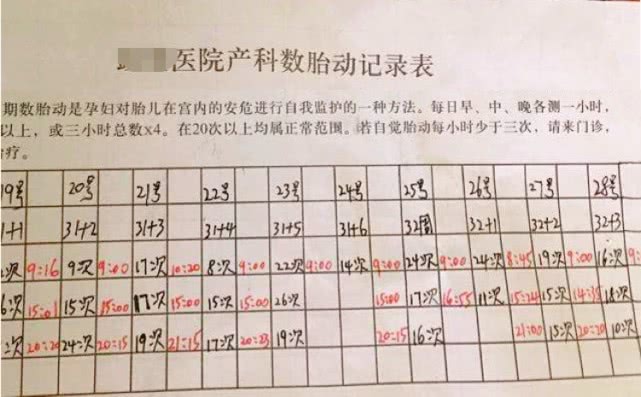 医院产科数胎动记录表
期数胎动是孕妇对胎儿在宫内的安危进行自我监护的一种方法。每日早、中、晚各测一小时,
以上,或三小时总数x4。在20次以上均属正常范围。若自觉胎动每小时少于三次,请来门诊,
疗。
19号 20号 21号 22号 23号 24号 25号 26号 27号 28号
1+1 31+2 31+3 31+4 31+5 31+6 32周 32+1 32+2 32+3
次 9:16 9次 9:00 17次 10:20 8次 9:00 22次 9:00 14次 9:00 24次 9:00 24次 8:45 19次 9:00 16次 9:
6次 15:01 15次 15:00 17次 15:00 15次 15:00 26次 15:00 17次 16:55 11次 15:24 15次 14:35 18次
次 20:20 24次 20:15 19次 21:15 17次 20:23 19次 20:15 16次 21:00 15次 20:20 10次